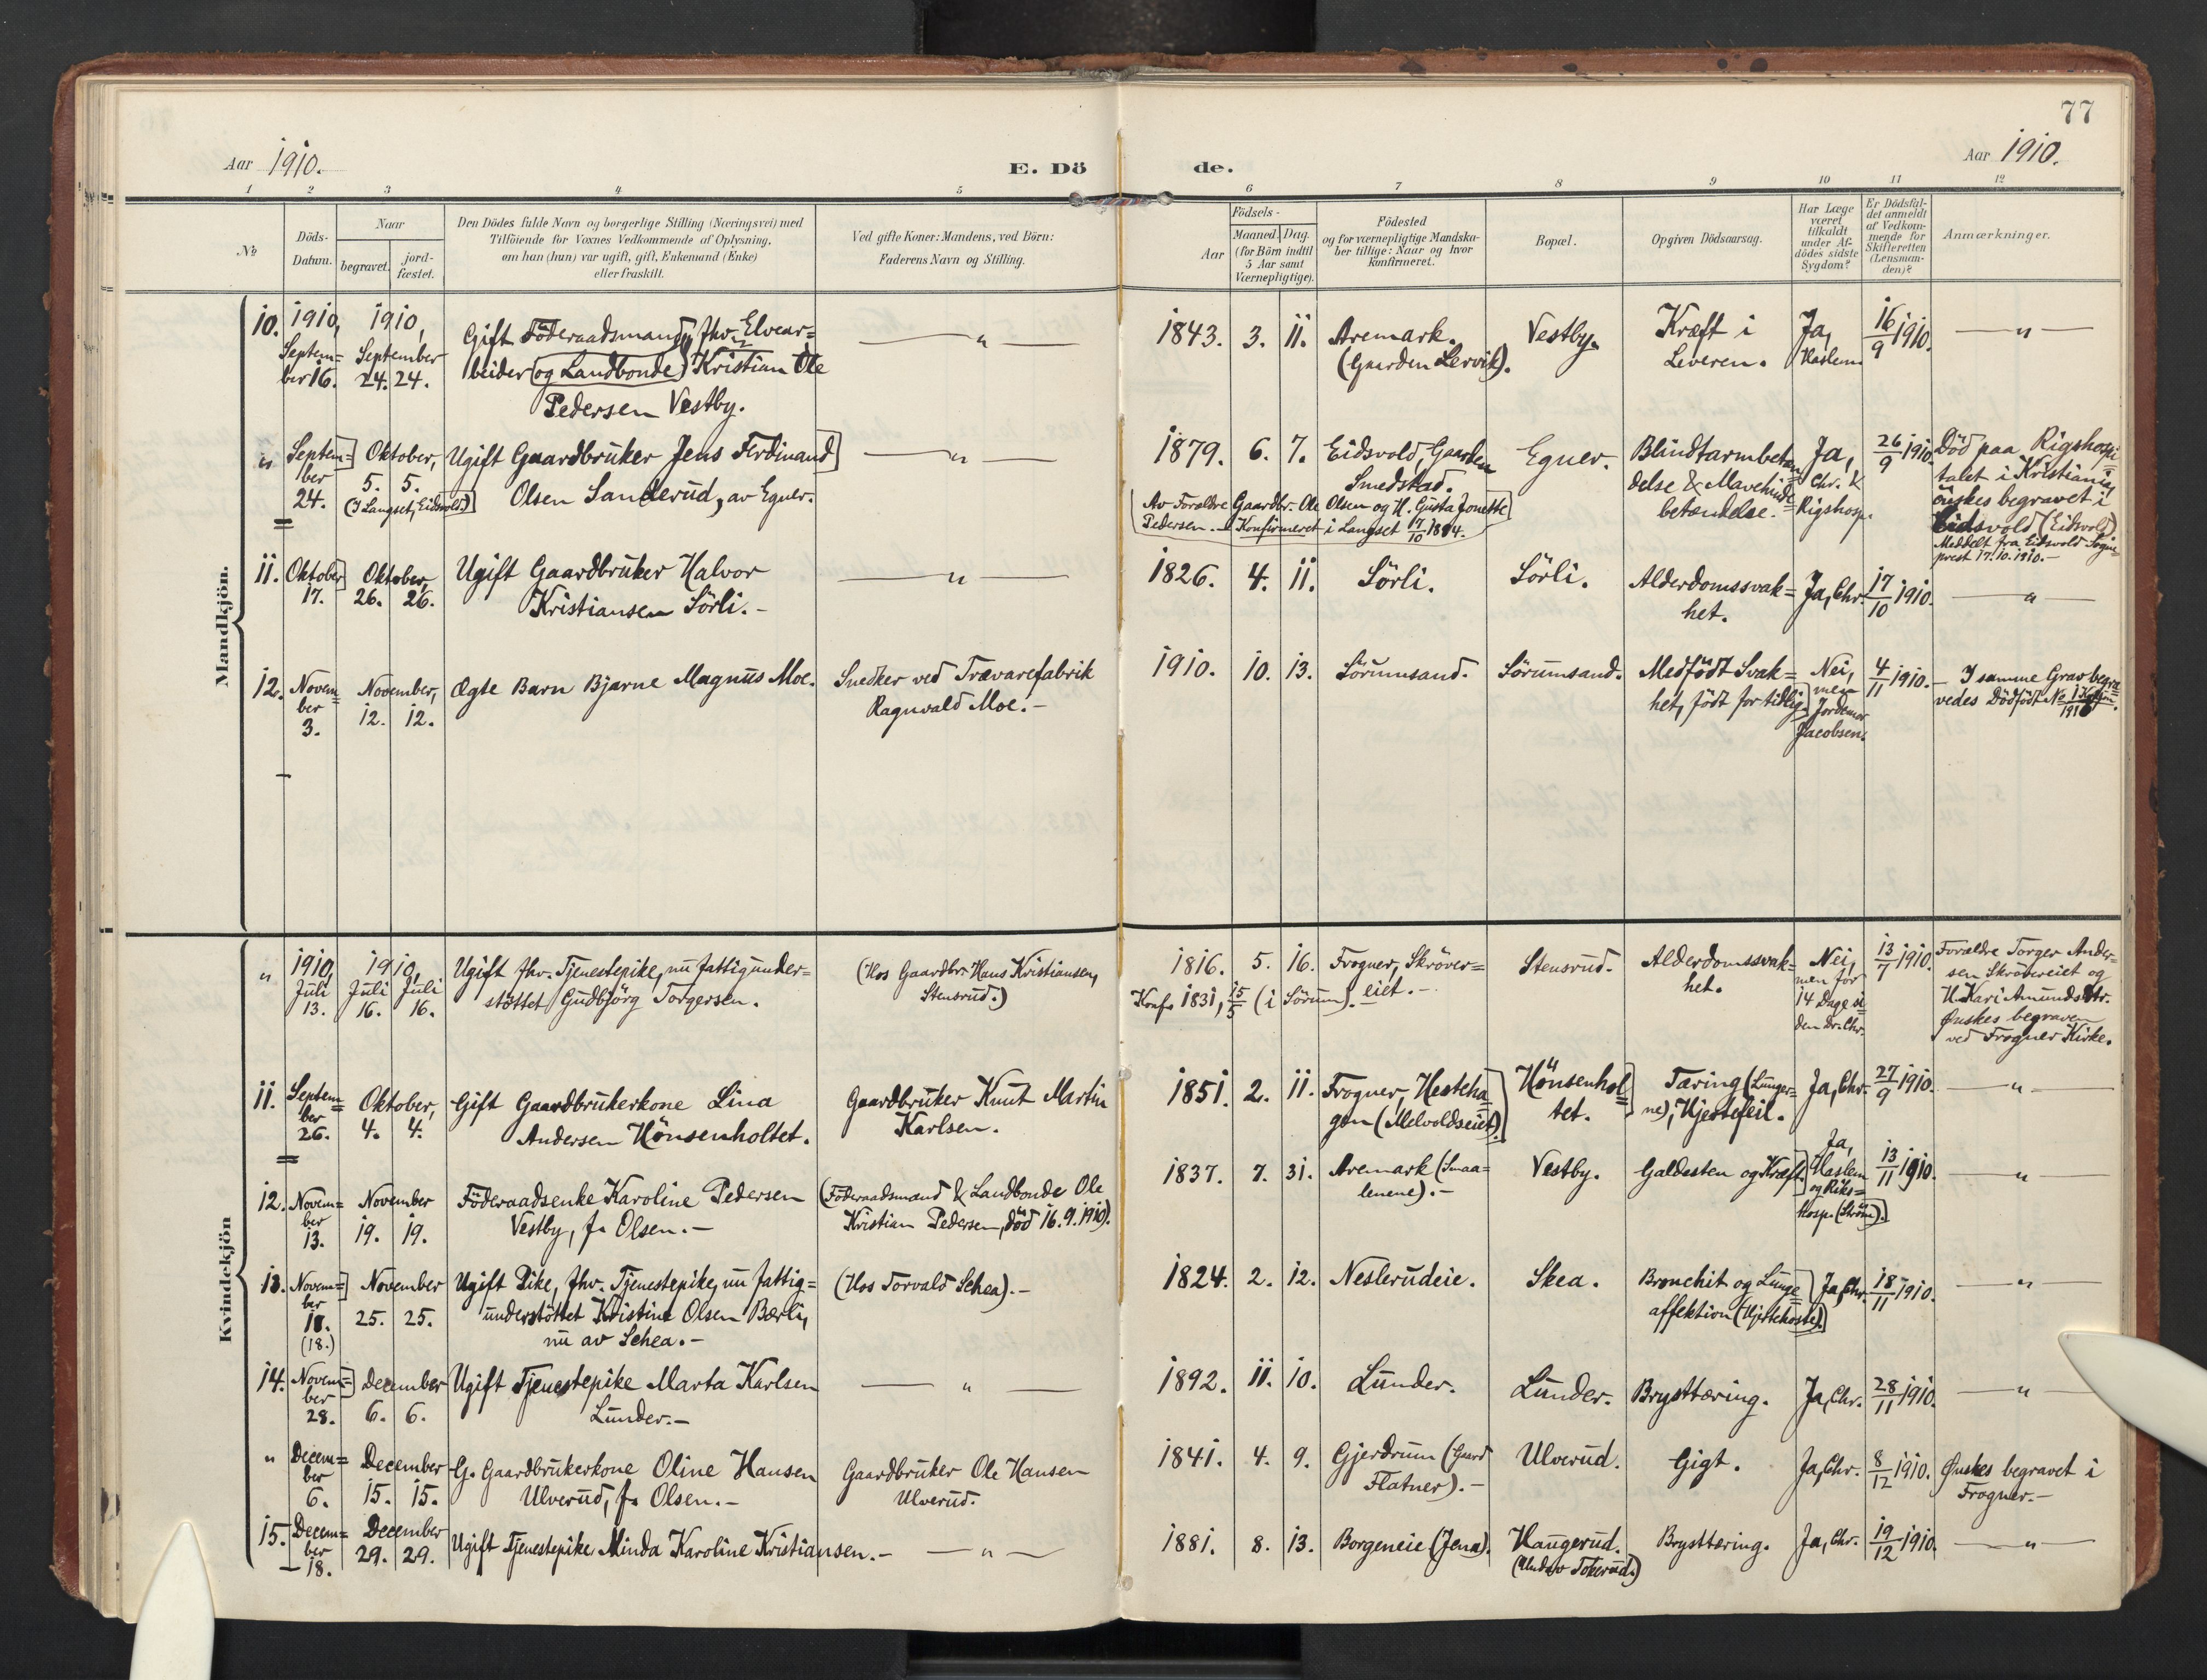 77
Aar 1910.
E. Dö
de.
Aar 1910.
1 2 3 4 5 6 7 8 9 10 11 12
No
Döds-
Datum.
Naar
begravet.
jord-
fæstet.
Den Dödes fulde Navn og borgerlige Stilling (Næringsvei) med
Tilföiende for Voxnes Vedkommende af Oplysning,
om han (hun) var ugift, gift, Enkemand (Enke)
eller fraskilt.
Ved gifte Koner: Mandens, ved Börn:
Faderens Navn og Stilling.
Födsels-
Aar
Maaned. Dag.
(for Börn indtil
5 Aar samt
Værnepligtige).
Födested
og for værnepligtige Mandska-
ber tillige: Naar og hvor
konfirmeret.
Bopæl.
Opgiven Dödsaarsag.
Har Læge
været
tilkaldt
under Af-
dödes sidste
Sygdom?
Er Dödsfal-
det anmeldt
af Vedkom-
mende for
Skifteretten
(Lensman-
den)?
Anmærkninger.
Mandkjön.
10.
1910,
Septem=
ber 16.
1910,
September
24. 24.
Gift Föderaadsmand, fhv. Elvear=
beider (og Landbonde) Kristian Ole
Pedersen Vestby.
— " —
1843. 3. 11.
Aremark.
(Gaarden Lervik).
Vestby.
Kræft i
Leveren.
Ja,
Haslem.
16/9 1910.
— " —
"
Septem=
ber
24.
Oktober,
5. 5.
(I Langset, Eidsvold.)
Ugift Gaardbruker Jens Ferdinand
Olsen Sanderud, av Egner.
— " —
1879. 6. 7.
Eidsvold, Gaarden
Smedstad.
Av Forældre Gaardbr. Ole Olsen og H. Gusta Jonette
Pedersen. — Konfirmeret i Langset 17/10 1894.
Egner.
Blindtarmbetæn
delse & Mavehinde
betændelse.
Ja,
Chr. &
Rigshosp.
26/9 1910.
Död paa Rigshospi
talet i Kristiania,
önskes begravet i
Eidsvold (Eidsvold)
Meddelt fra Eidsvold Sogne
prest 17.10.1910.—
11.
Oktober
17.
Oktober,
26. 26.
Ugift Gaardbruker Halvor
Kristiansen Sörli.—
— " —
1826. 4. 11.
Sörli.
Sörli.
Alderdomssvak=
het.
Ja, Chr.
17/10 1910.
— " —
12.
Novem=
ber
3.
November,
12. 12.
Ægte Barn Bjarne Magnus Moe.
Snedker ved Trævarefabrik
Ragnvald Moe.—
1910. 10. 13.
Sörumsand.
Sörumsand.
Medfödt Svak=
het, födt for tidlig.
Nei,
men
Jordemor
Jacobsen.
4/11 1910.
— I samme Grav begra=
vedes Dödfödt No 1
1910.
Kvindekjön
"
1910,
Juli
13.
1910,
Juli Juli
16. 16.
Ugift fhv. Tjenestepike, nu fattigunder=
stöttet Gudbjörg Torgersen.
(Hos Gaardbr. Hans Kristiansen,
Stensrud.)
1816. 5. 16.
Frogner, Skröver=
eiet.—
Konf. 1831, 15/5 (i Sörum).
Stensrud.
Alderdomssvak=
het.
Nei,
men for
14 Dage si
den Dr. Chr.
13/7 1910.
Forældre Torger Ander=
sen Skrövereiet og
H. Kari Amundsdtr.
Ønskes begraven
ved Frogner Kirke.
11.
Septem=
ber
26.
Oktober,
4. 4.
Gift Gaardbrukerkone Lina
Andersen Hönsenholtet.
Gaardbruker Knut Martin
Karlsen.
1851. 2. 11.
Frogner, Hesteha=
gen (Melvoldseiet).
Hönsenhol=
tet.
Tæring (Lunger=
ne), Hjertefeil.
Ja, Chr.
27/9 1910.
— " —
12.
Novem=
ber
13.
November
19. 19.
Föderaadsenke Karoline Pedersen
Vestby, f. Olsen.—
(Föderaadsmand & Landbonde Ole
Kristian Pedersen, död 16.9.1910).
1837. 7. 31.
Aremark (Smaa=
lenene).—
Vestby.
Galdesten og Kræft.
Ja,
Haslem
og Riks=
hosp. (Ström).
13/11 1910.
— " —
13.
Novem=
ber
18.
(18.)
November
25. 25.
Ugift Pike, fhv. Tjenestepike, nu fattig=
understöttet Kristine Olsen Bærli,
nu av Schea.—
(Hos Torvald Schea).—
1824. 2. 12.
Neslerudeie.
Skea.
Bronchit og Lunge=
affektion (Hjertehoste).
Ja, Chr.
18/11 1910.
— " —
14.
Novem=
ber
28.
December
6. 6.
Ugift Tjenestepike Marta Karlsen
Lunder.—
— " —
1892. 11. 10.
Lunder.
Lunder.
Brysttæring.
Ja, Chr.
28/11 1910.
— " —
"
Decem=
ber
6.
December
15. 15.
G. Gaardbrukerkone Oline Hansen
Ulverud, f. Olsen.—
Gaardbruker Ole Hansen
Ulverud.
1841. 4. 9.
Gjerdrum (Gaard
Flatner).—
Ulverud.
Gigt.
Ja, Chr.
8/12 1910.
Ønskes begravet i
Frogner.—
15.
Decem=
ber
18.
December
29. 29.
Ugift Tjenestepike Minda Karoline Kristiansen.—
— " —
1881. 8. 13.
Borgeneie (Jena).
Haugerud.
(Under Tokerud.)
Brysttæring.
Ja, Chr.
19/12 1910.
— " —